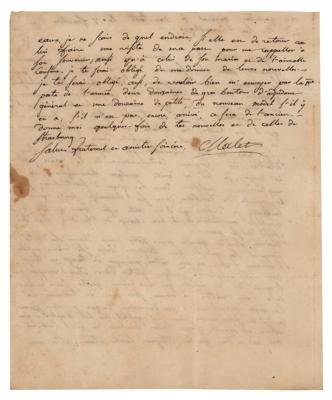 eaux, je ne sais de quel endroit, si elle est de retour va
lui faire une visite de ma part pour me rappeller à
son souvenir, ainsi qu'à celui de son mari et de l'aimable
cousine, je te serai obligé de me donner de leurs nouvelles.
je te serai obligé, aussi, de vouloir bien m'envoyer par la
poste de l'armée, deux douzaines, de gros boutons d'adjudant
général et une douzaine de petits, du nouveau model s'il y
en a, s'il n'en pas, encore, arrivé, ce sera de l'ancien.
donne moi quelques fois de tes nouvelles et de celles de
Strasbourg.
Salut fraternel et amitié sincère,